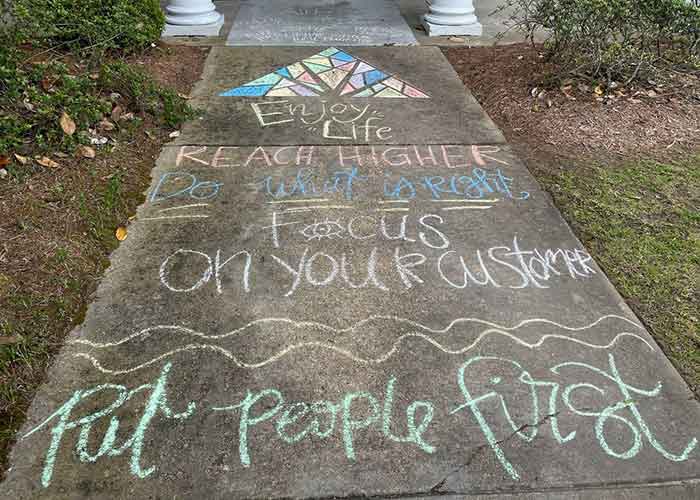 Enjoy
Life
REACH HIGHER
Do what is right
Focus
On your customer
Put People first